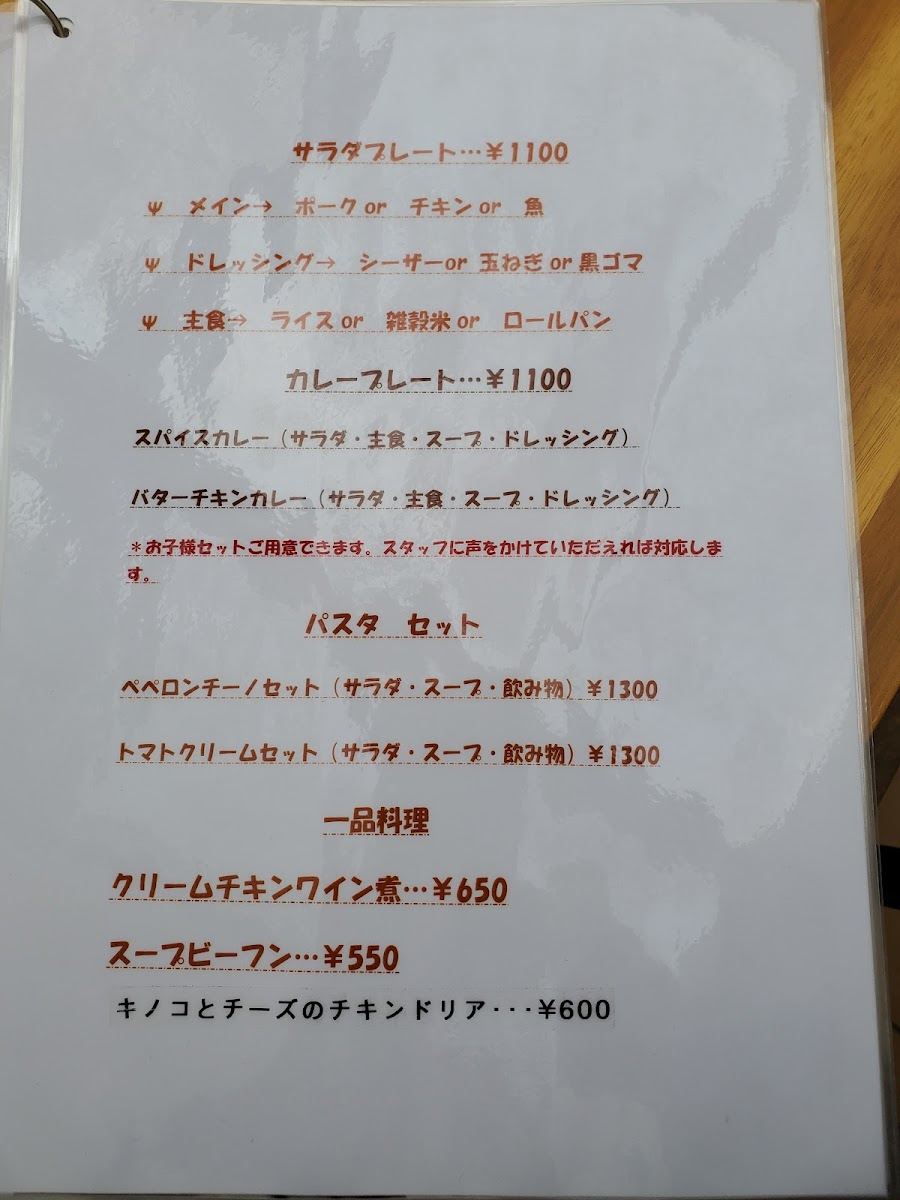 サラダプレート…￥1100
Ψ　メイン→　ポーク or　チキン or　魚
Ψ　ドレッシング→　シーザーor 玉ねぎ or 黒ゴマ
Ψ　主食→　ライス or　雑穀米 or　ロールパン
カレープレート…￥1100
スパイスカレー（サラダ・主食・スープ・ドレッシング）
バターチキンカレー（サラダ・主食・スープ・ドレッシング）
＊お子様セットご用意できます。スタッフに声をかけていただえれば対応しま
す。
パスタ　セット
ペペロンチーノセット（サラダ・スープ・飲み物）￥1300
トマトクリームセット（サラダ・スープ・飲み物）￥1300
一品料理
クリームチキンワイン煮…￥650
スープビーフン…￥550
キノコとチーズのチキンドリア･･･¥600